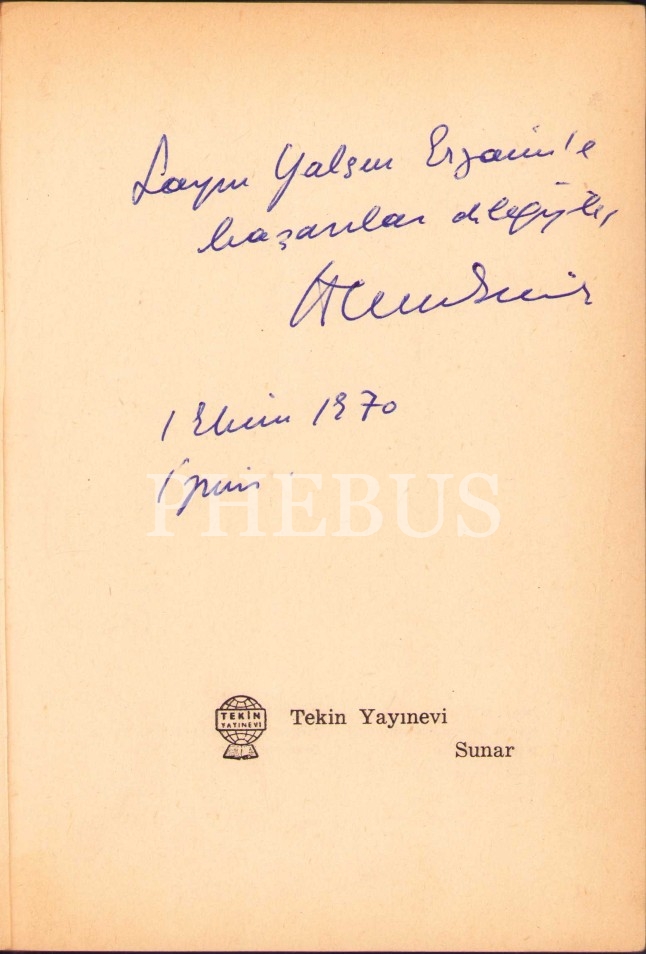 Sayın Yalçın Erzaim'e
başarılar dileğiyle,
1 Ekim 1970
İzmir
PHEBUS
TEKİN
YAYINEVİ
Tekin Yayınevi
Sunar